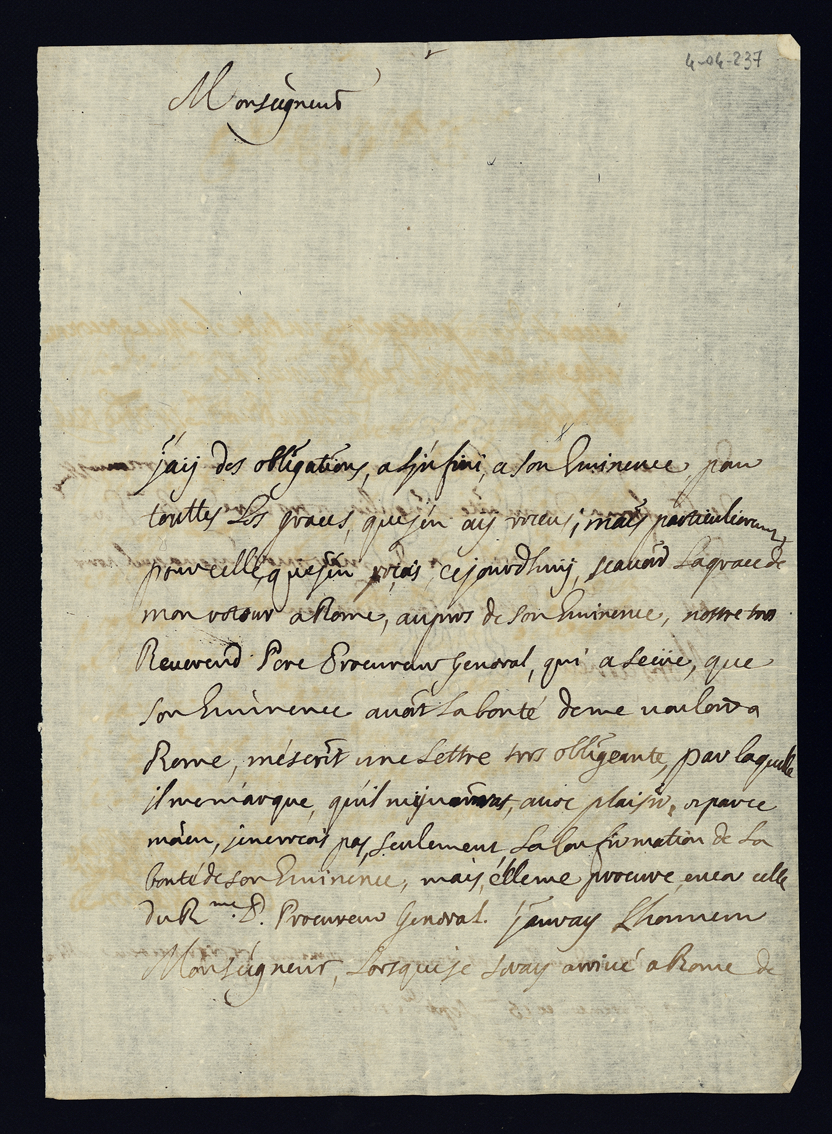 4-04-237
Monseigneur
j'aÿ des obligations, a L'jnfini, a son Eminence, pour
touttes Les graces, que j'en aÿ receus; mais particulierement
pour celle, que j'en reçois, cejourdhuij, scauoir La grace de
mon retour a Rome, aupres de son Eminence, nostre tres
Reuerend Pere Procureur General, qui a sceüe, que
son Eminence auoit La bonté de me uouloir a
Rome, m'escrit une Lettre tres obligeante, par laquelle
il me marque, qu'il m'y auec plaisir, et par ce
moien, je ne recois pas, seulement La Confirmation de La
bonté de son Eminence, mais, elle me procure, encor celle
du R.me P. Procureur General. j'auray L'honneur
Monseigneur, Lorsque je seray arriué a Rome de